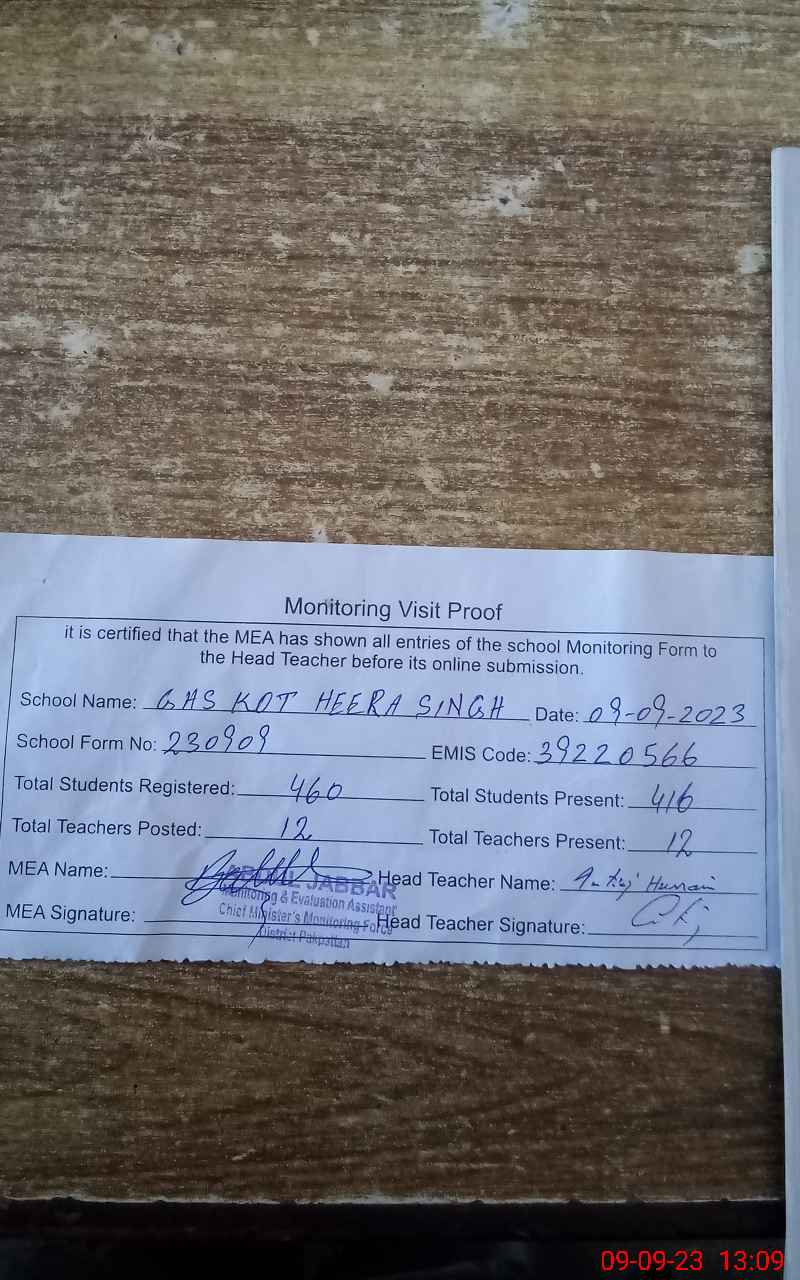 Monitoring Visit Proof
it is certified that the MEA has shown all entries of the school Monitoring Form to
the Head Teacher before its online submission.
School Name: GHS KOT HEERA SINGH Date: 09-09-2023
School Form No: 230909 EMIS Code: 39220566
Total Students Registered: 460 Total Students Present: 416
Total Teachers Posted: 12 Total Teachers Present: 12
MEA Name: Head Teacher Name: Hussain
JABBAR
Monitoring & Evaluation Assistant
Chief Minister's Monitoring Force
District Pakpattan
MEA Signature: Head Teacher Signature:
09-09-23 13:09